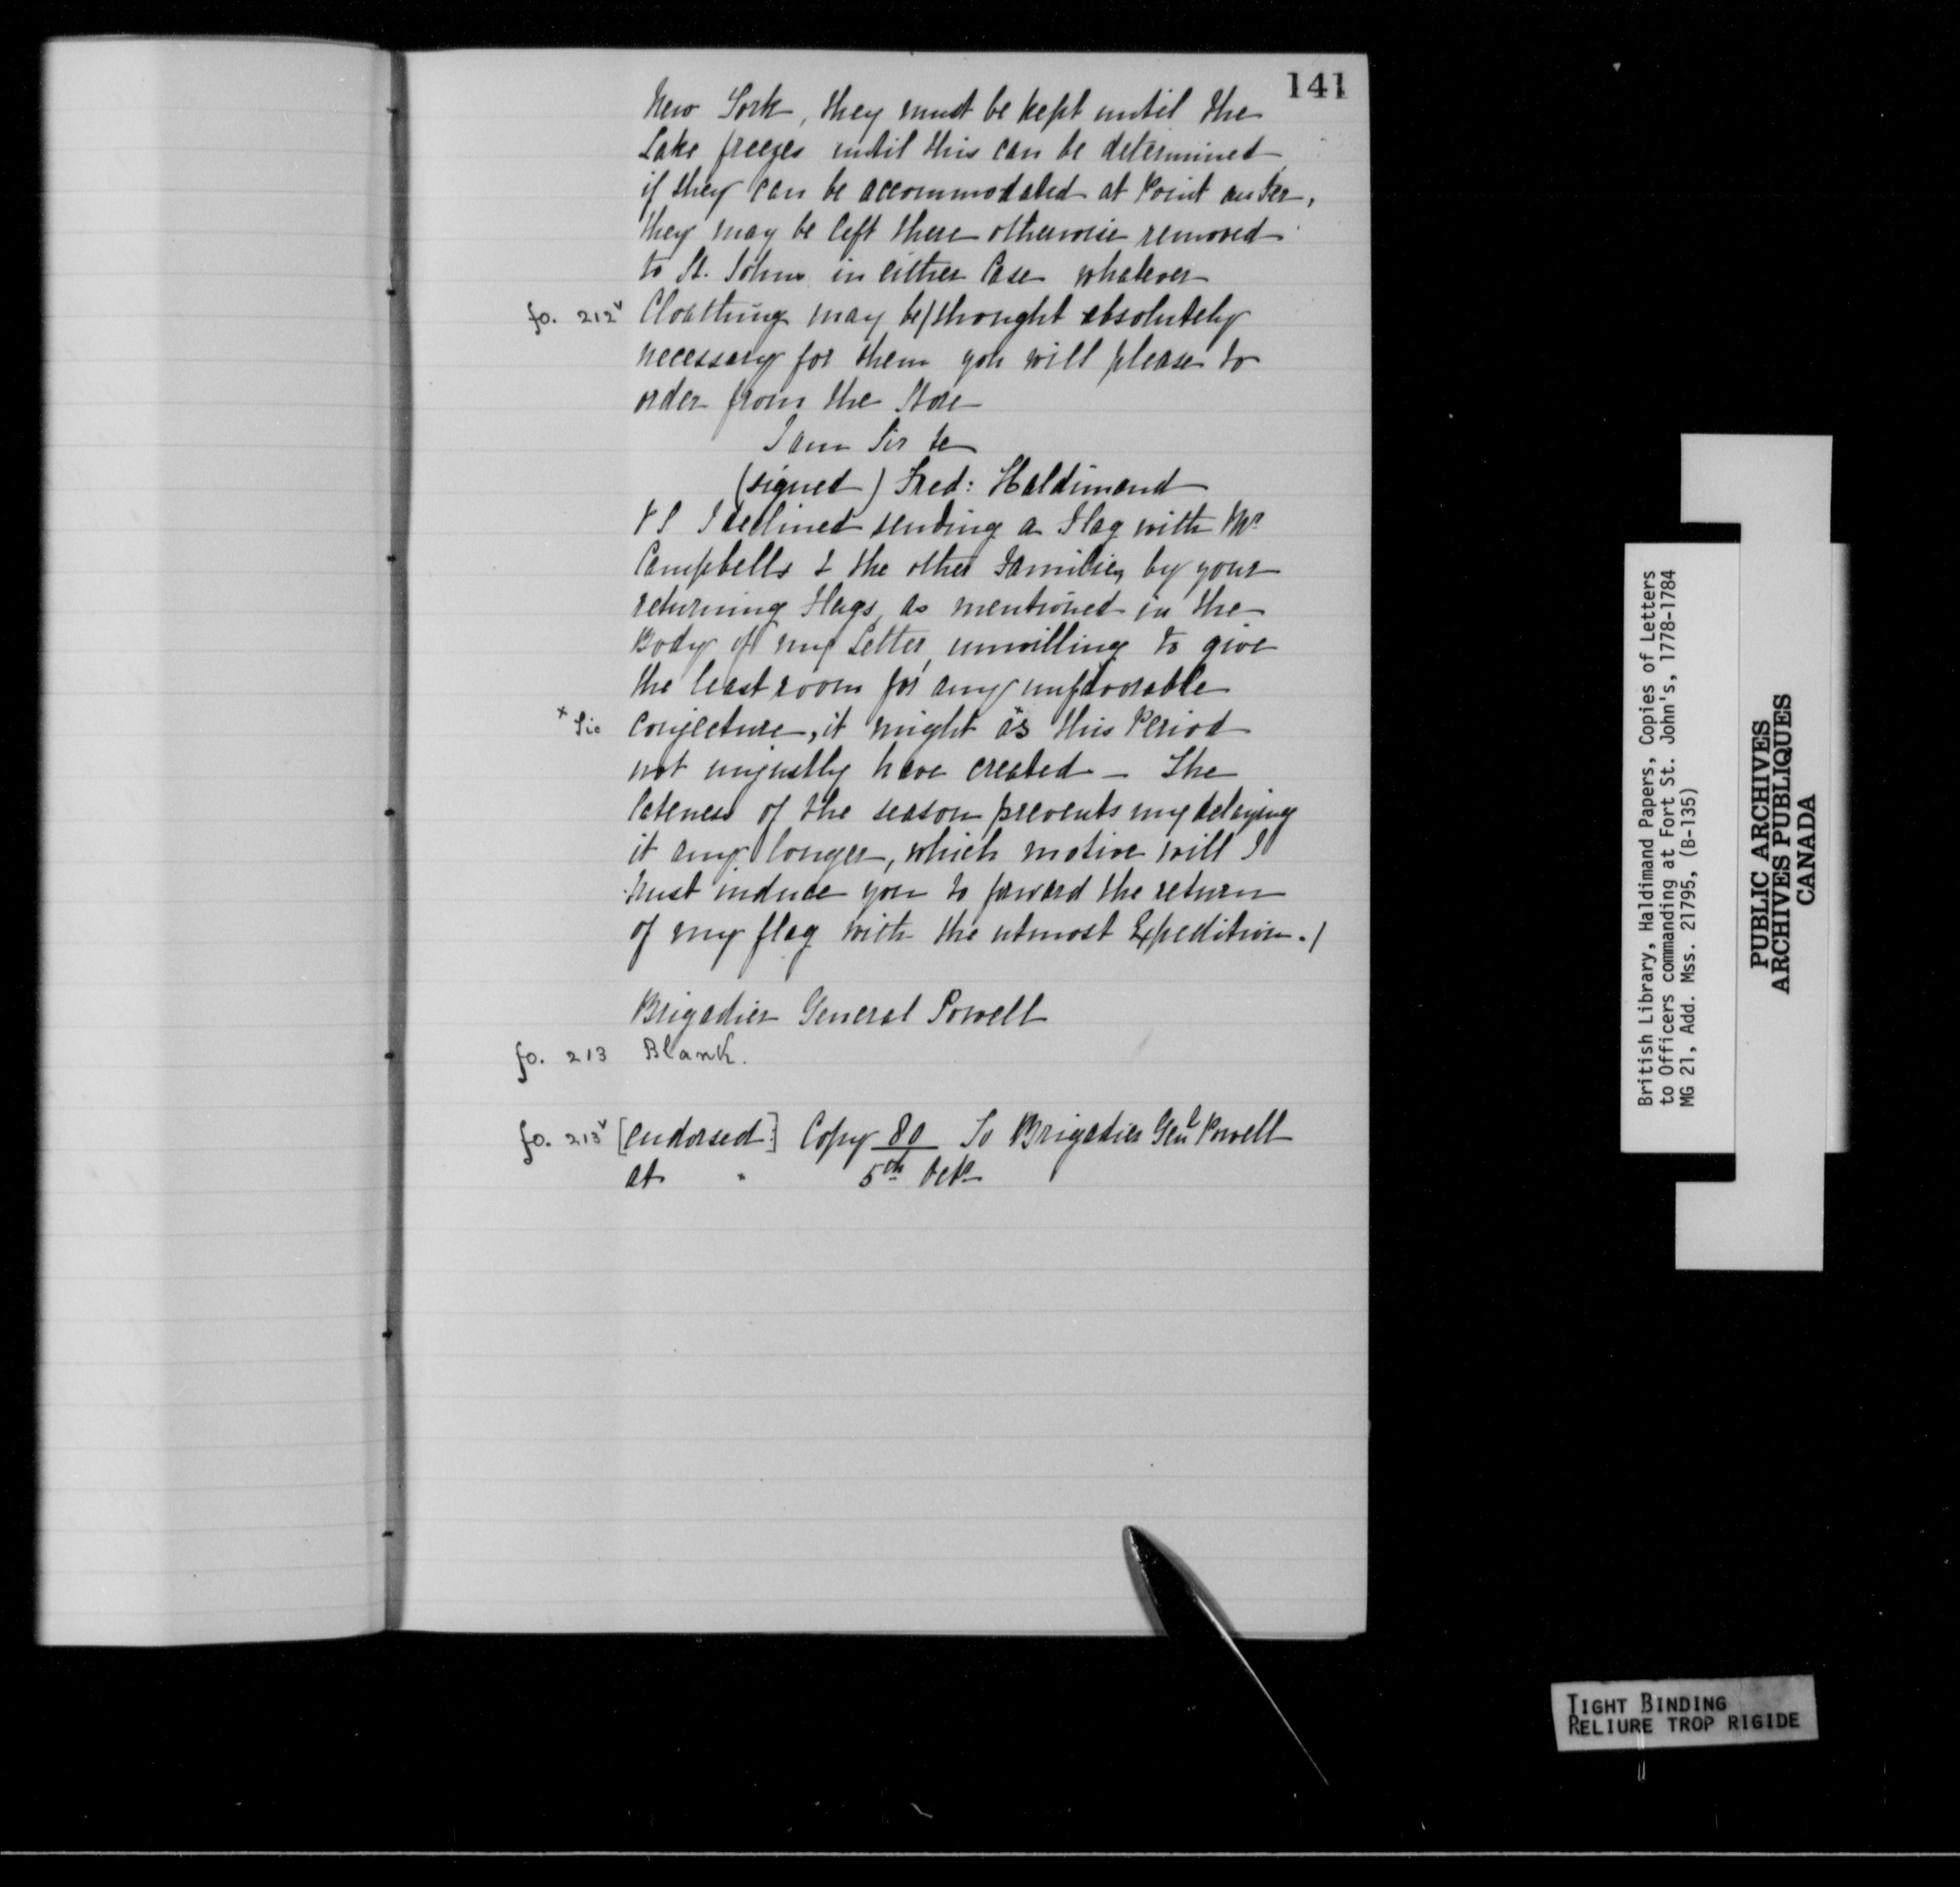 141
New York, they must be kept until the
Lake freezes until this can be determined
if they can be accommodated at Point au Fer,
they may be left there otherwise removed
to St. Johns in either Case whatever
fo. 212v Cloathing may be/thought absolutely
necessary for them you will please to
order from the Store
I am Sir &c
(signed) Fred: Haldimand
P S I declined sending a Flag with Mrs
Campbells & the other Families by your
returning Flags, as mentioned in the
Body of my Letter, unwilling to give
the least room for any unfavorable
x Sic conjecture, it might as x this Period
not unjustly have created – The
lateness of the season prevents my delaying
it any longer, which motive will I
trust induce you to forward the return
of my flag with the utmost Expedition./
Brigadier General Powell
fo. 213 Blank.
fo. 213v [endorsed:] Copy 80 To Brigadier Genl Powell
at " 5th Octr
British Library, Haldimand Papers, Copies of Letters
to Officers commanding at Fort St. John's, 1778-1784
MG 21, Add. Mss. 21795, (B-135)
PUBLIC ARCHIVES
ARCHIVES PUBLIQUES
CANADA
TIGHT BINDING
RELIURE TROP RIGIDE